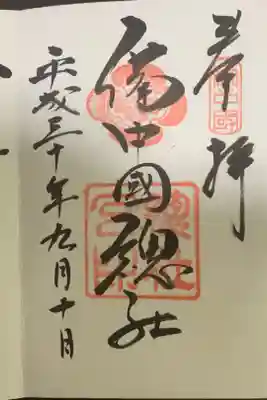 奉拝
備中國総社
平成三十年九月十日